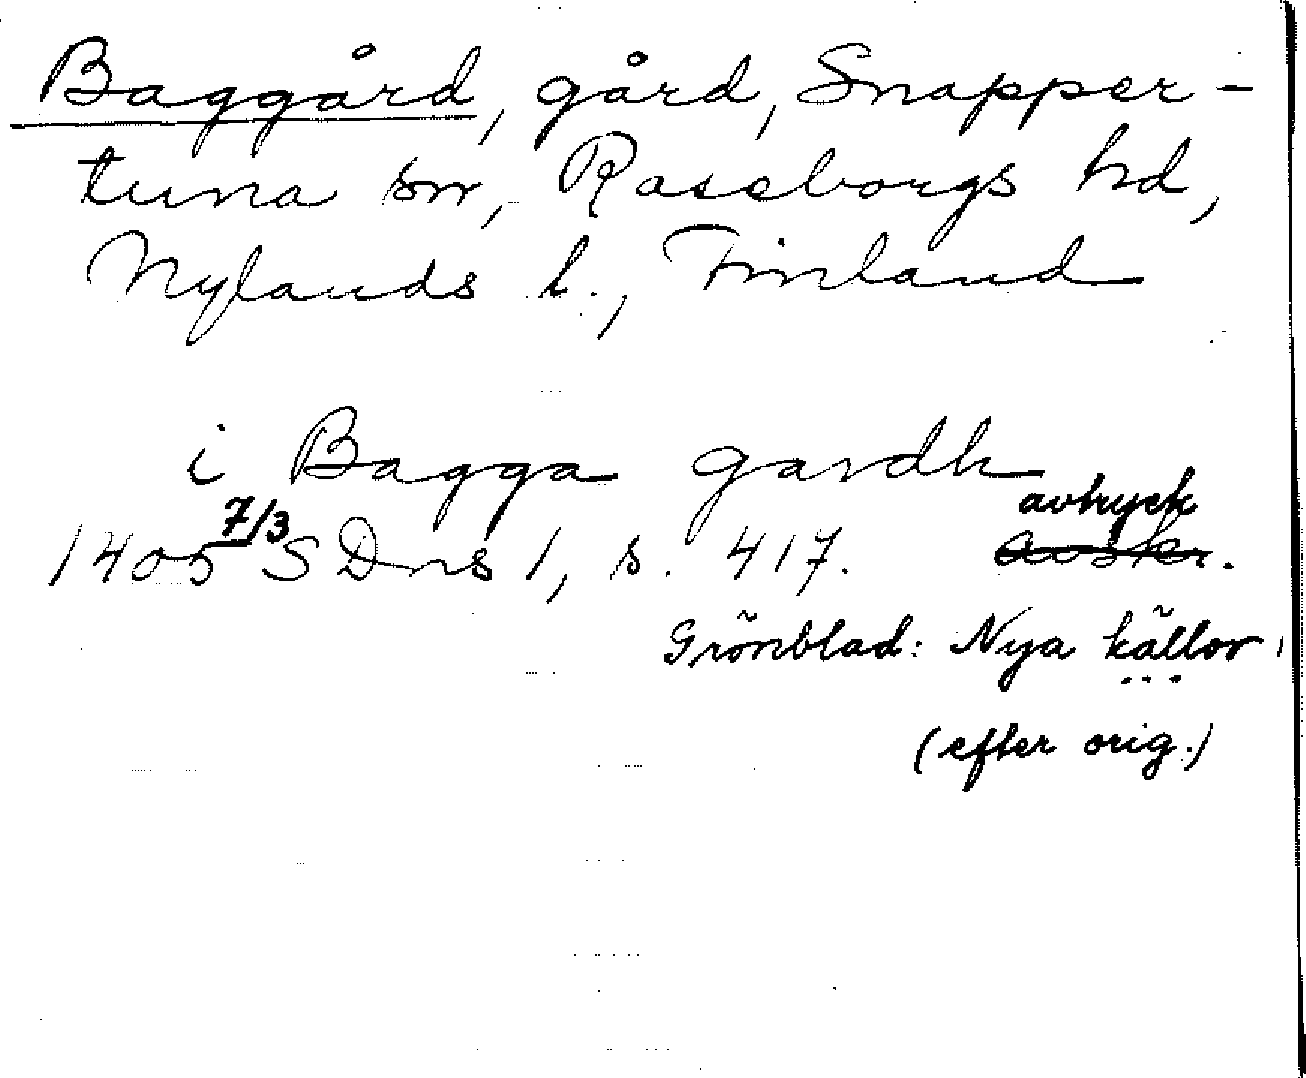 Baggård, gård, Snapper-
tuna sn, Raseborgs hd,
Nylands l., Finland
i Bagga gardh
avtryck
1405 7/3 SDns 1, s. 417. avskr.
Grönblad: Nya källor
...
(efter orig.)